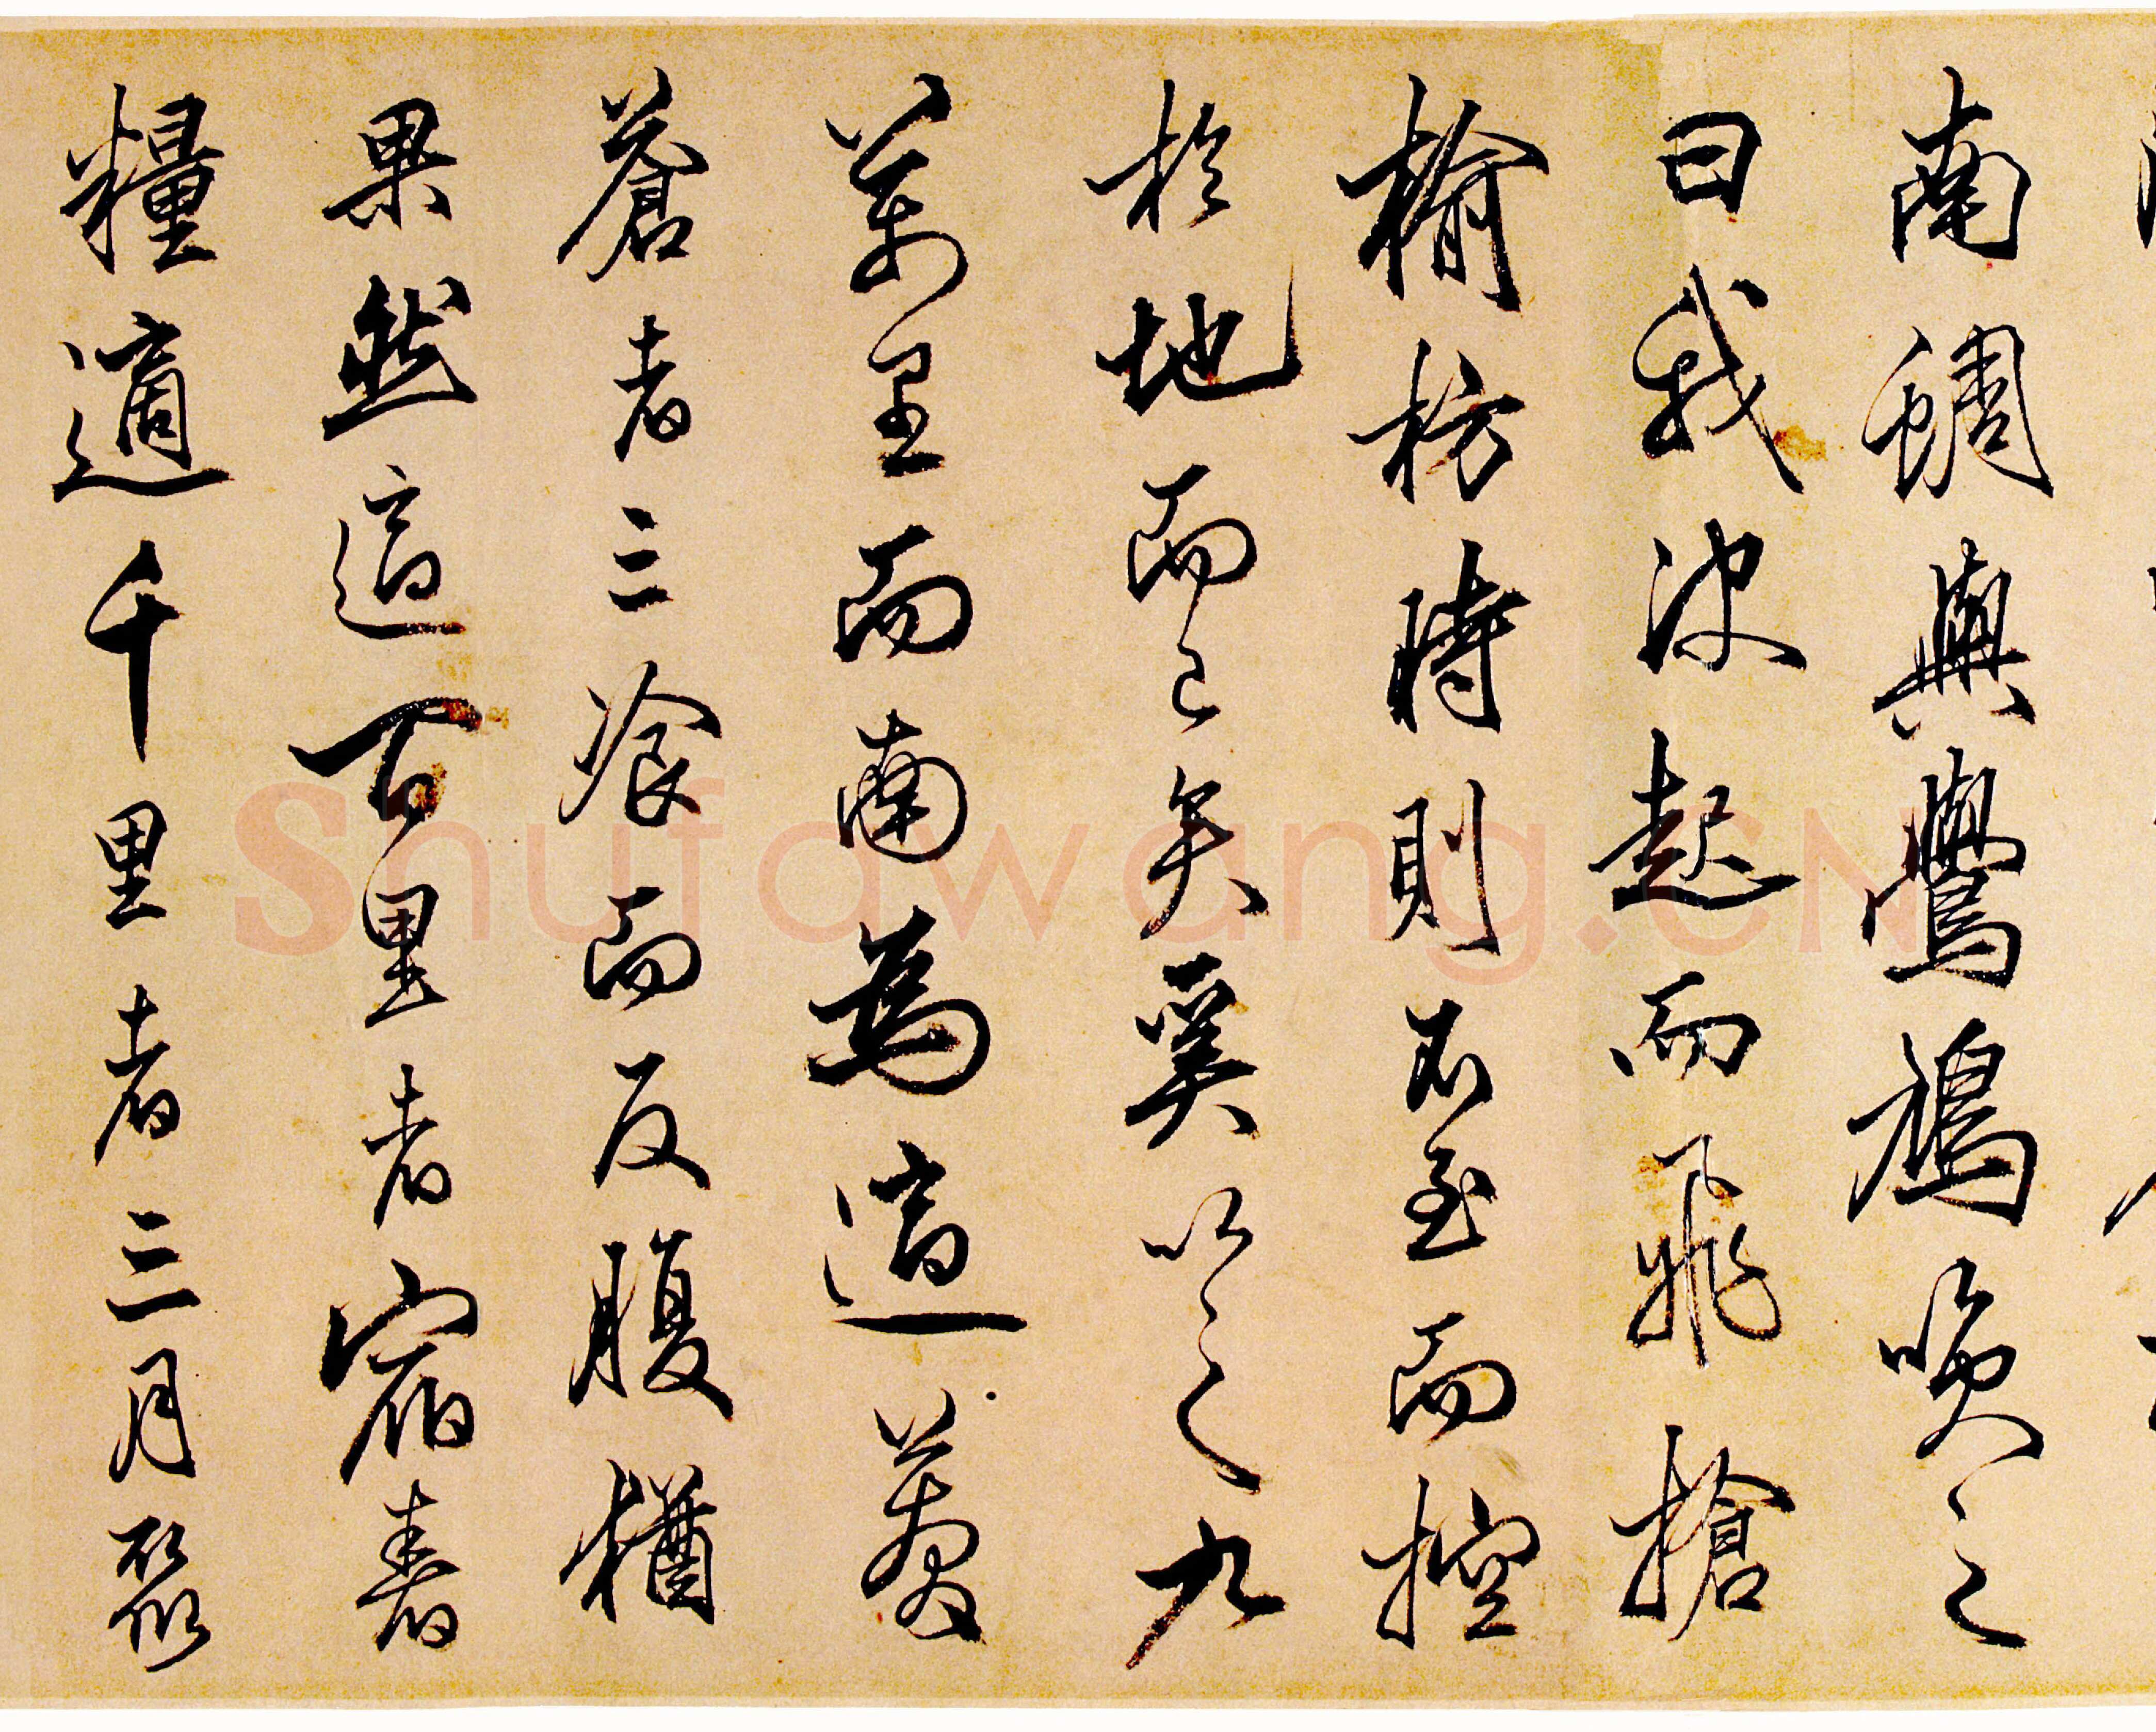 南蜩與鷽鳩笑之
曰我決起而飛搶
榆枋時則不至而控
於地而已矣奚以之九
萬里而南為適莽
蒼者三飡而反腹猶
果然適百里者宿舂
糧適千里者三月聚
Shufawang.CN